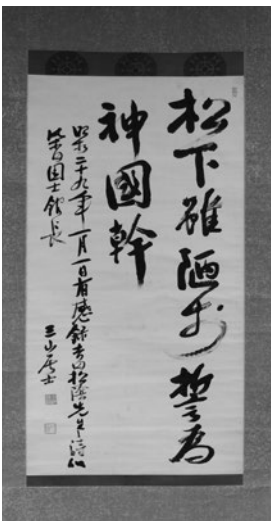 松下雖陋村 誓為
神國幹
昭和二十九年一月一日有感錄吉田松陰先生詩似
國士舘長
三山居士